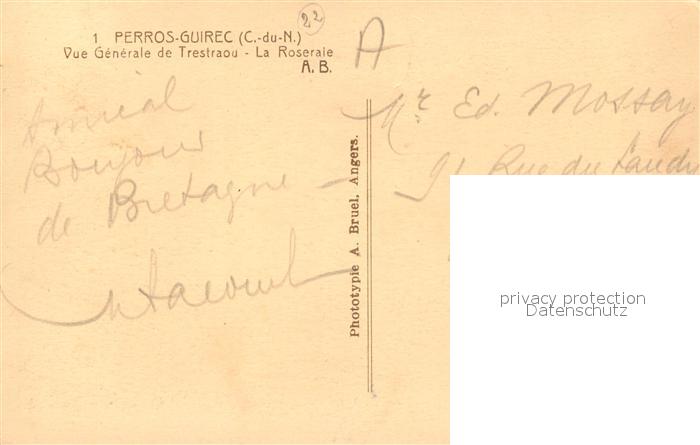 22
1 PERROS-GUIREC (C.-du-N.)
Vue Générale de Trestraou - La Roseraie
A. B.
A
Amical
Bonjour
de Bretagne -
Phototypie A. Bruel, Angers.
Mr Ed. Mossay
91 Rue du
privacy protection
Datenschutz